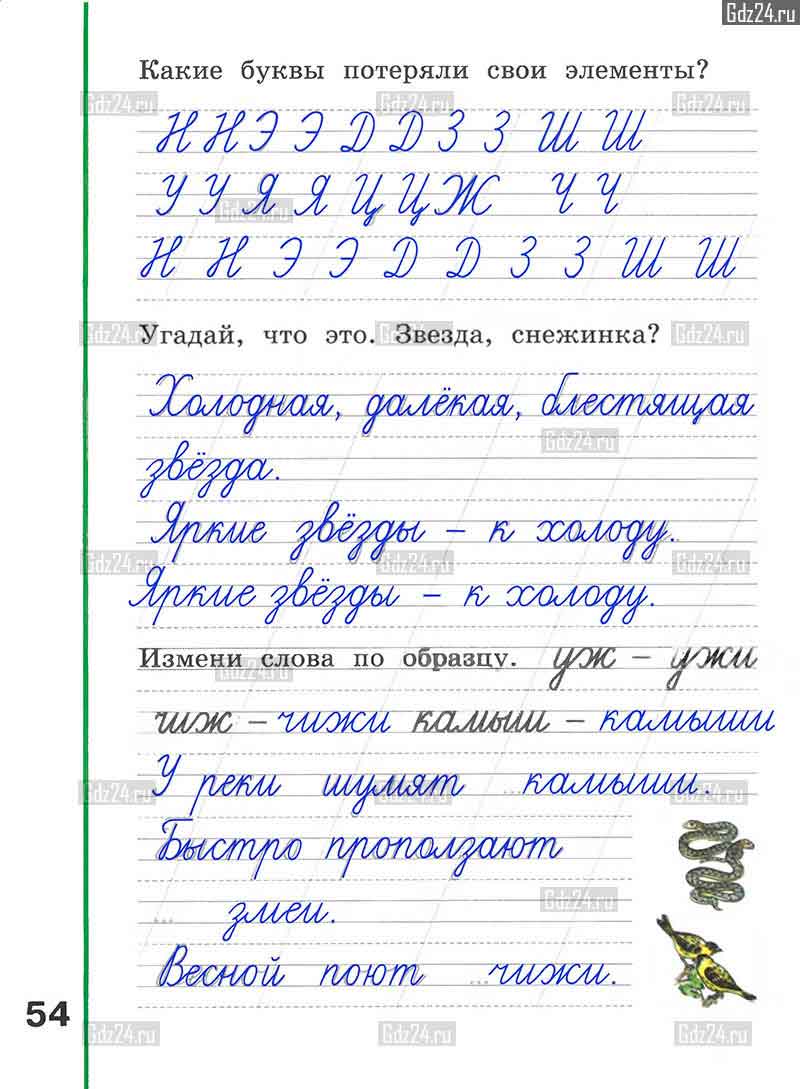 Gdz24.ru
Какие буквы потеряли свои элементы?
Н Н Э Э Д Д З З Ш Ш
У У Я Я Ц Ц Ж Ч Ч
Н Н Э Э Д Д З З Ш Ш
Угадай, что это. Звезда, снежинка?
Холодная, далёкая, блестящая
звёзда.
Яркие звёзды – к холоду.
Яркие звёзды – к холоду.
Измени слова по образцу. уж – ужи
чиж – чижи камыш – камыши
У реки шумят ...камыши.
Быстро проползают
... змеи.
Весной поют ...чижи.
54